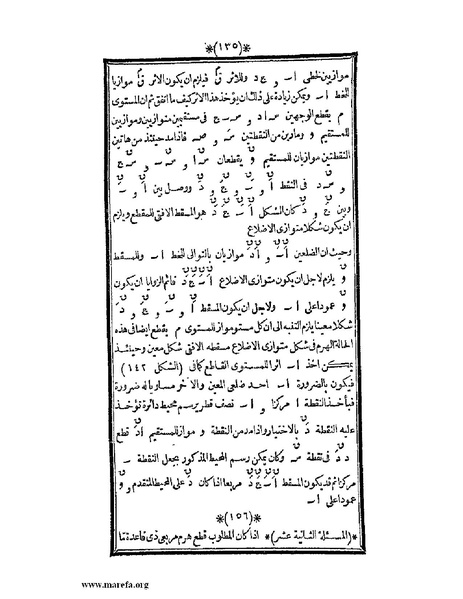 *(١٣٥)*
موازيين لخطى ا ـ و ج د وللاثر ق فيلزم ان يكون الاثر ق موازيا
للخط ا ـ ويمكن زيادة على ذلك ان يؤخذ هذا الاثر كيف ما اتفق ثم ان المستوى
م يقطع الوجهين س ا د و س ـ ج فى مستقيمين متوازيين وموازيين
للمستقيم و ومارين من النقطتين س و ص فاذا مد حينئذ من هاتين
النقطتين موازيان للمستقيم و يقطعان س ا و س ـ و س ج
و س د فى النقط ا و ـ و ج و د ووصل بين ا و ـ
وبين ج و د كان الشكل ا ـ ج د هو المسقط الافقى للمقطع ويلزم
ان يكون شكلا متوازى الاضلاع
وحيث ان الضلعين ا ـ و ا د موازيان بالتوالى للخط ا ـ وللمسقط
و يلزم لاجل ان يكون متوازى الاضلاع ا ـ ج د قائم الزوايا ان يكون
و عمودا على ا ـ ولاجل ان يكون المسقط ا ـ و ج د
شكلا معينا يلزم التنبه الى ان كل مستو مواز للمستوى م يقطع ايضا فى هذه
الحالة الهرم فى شكل متوازى الاضلاع مسقطه الافقى شكل معين وحينئذ
يمكن اخذ ا ـ اثرا للمستوى القاطع كما فى (الشكل ١٤٢)
فيكون بالضرورة ا ـ احد ضلعى المعين والآخر مساويا له ضرورة
فبأخذ النقطة ا مركزا و ا ـ نصف قطر يرسم محيط دائرة تؤخذ
عليه النقطة د بالاختيار واذا مد من النقطة و مواز للمستقيم ا د قطع
د د فى نقطة س وكان يمكن رسم المحيط المذكور بجعل النقطة ـ
مركزا ثم قد يكون المسقط ا ـ ج د مربعا اذا كان د على المحيط المتقدم و
عمودا على ا ـ
*(١٥٦)*
*(المسئلة الثانية عشر)* اذا كان المطلوب قطع هرم مربعى ذى قاعدة ما
www.marefa.org